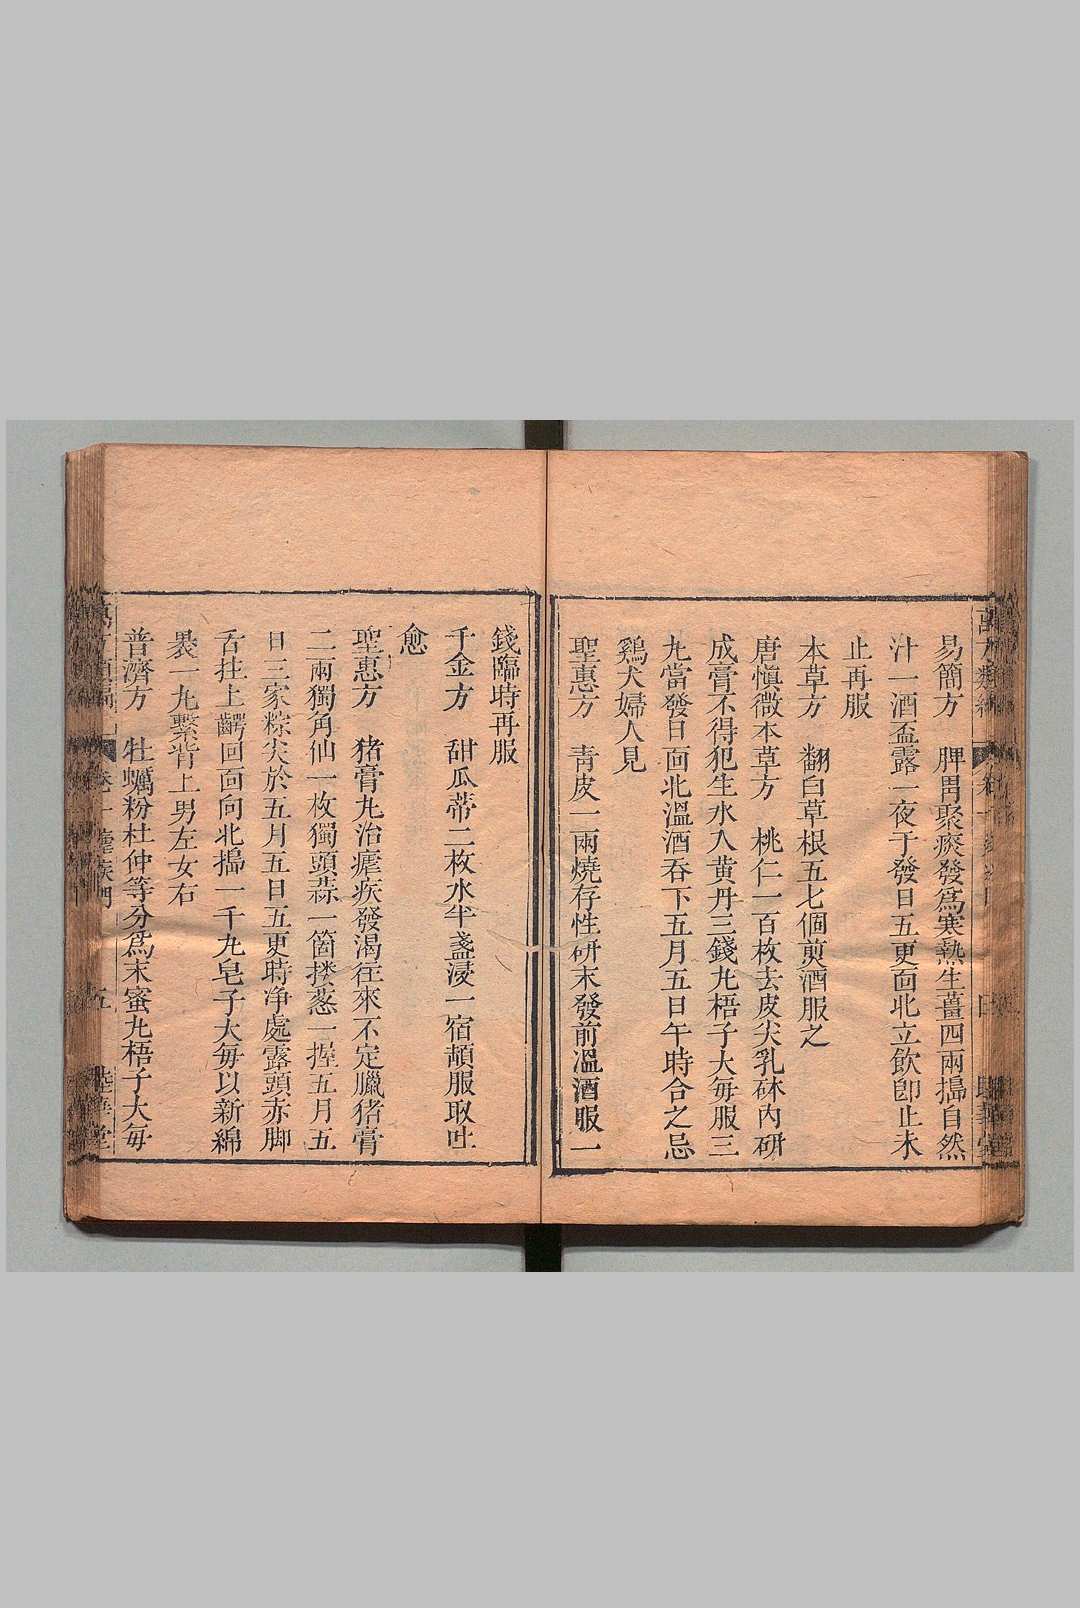 易簡方　脾胃聚痰發爲寒熱生薑四兩搗自然
汁一酒盃露一夜于發日五更面北立飲卽止未
止再服
本草方　翻白草根五七個煎酒服之
唐愼微本草方　桃仁一百枚去皮尖乳砵內研
成膏不得犯生水入黃丹三錢丸梧子大每服三
丸當發日面北溫酒吞下五月五日午時合之忌
鷄犬婦人見
聖惠方　靑皮一兩燒存性研末發前溫酒服一
錢臨時再服
千金方　甜瓜蒂二枚水半盞浸一宿頓服取吐
愈
聖惠方　猪膏丸治瘧疾發渴往來不定臘猪膏
二兩獨角仙一枚獨頭蒜一箇搂葱一握五月五
日三家粽尖於五月五日五更時净處露頭赤脚
舌拄上齶回面向北搗一千丸皂子大每以新綿
裹一丸繫背上男左女右
普濟方　牡蠣粉杜仲等分爲末蜜丸梧子大每
卷一 瘧疾門 五 華堂